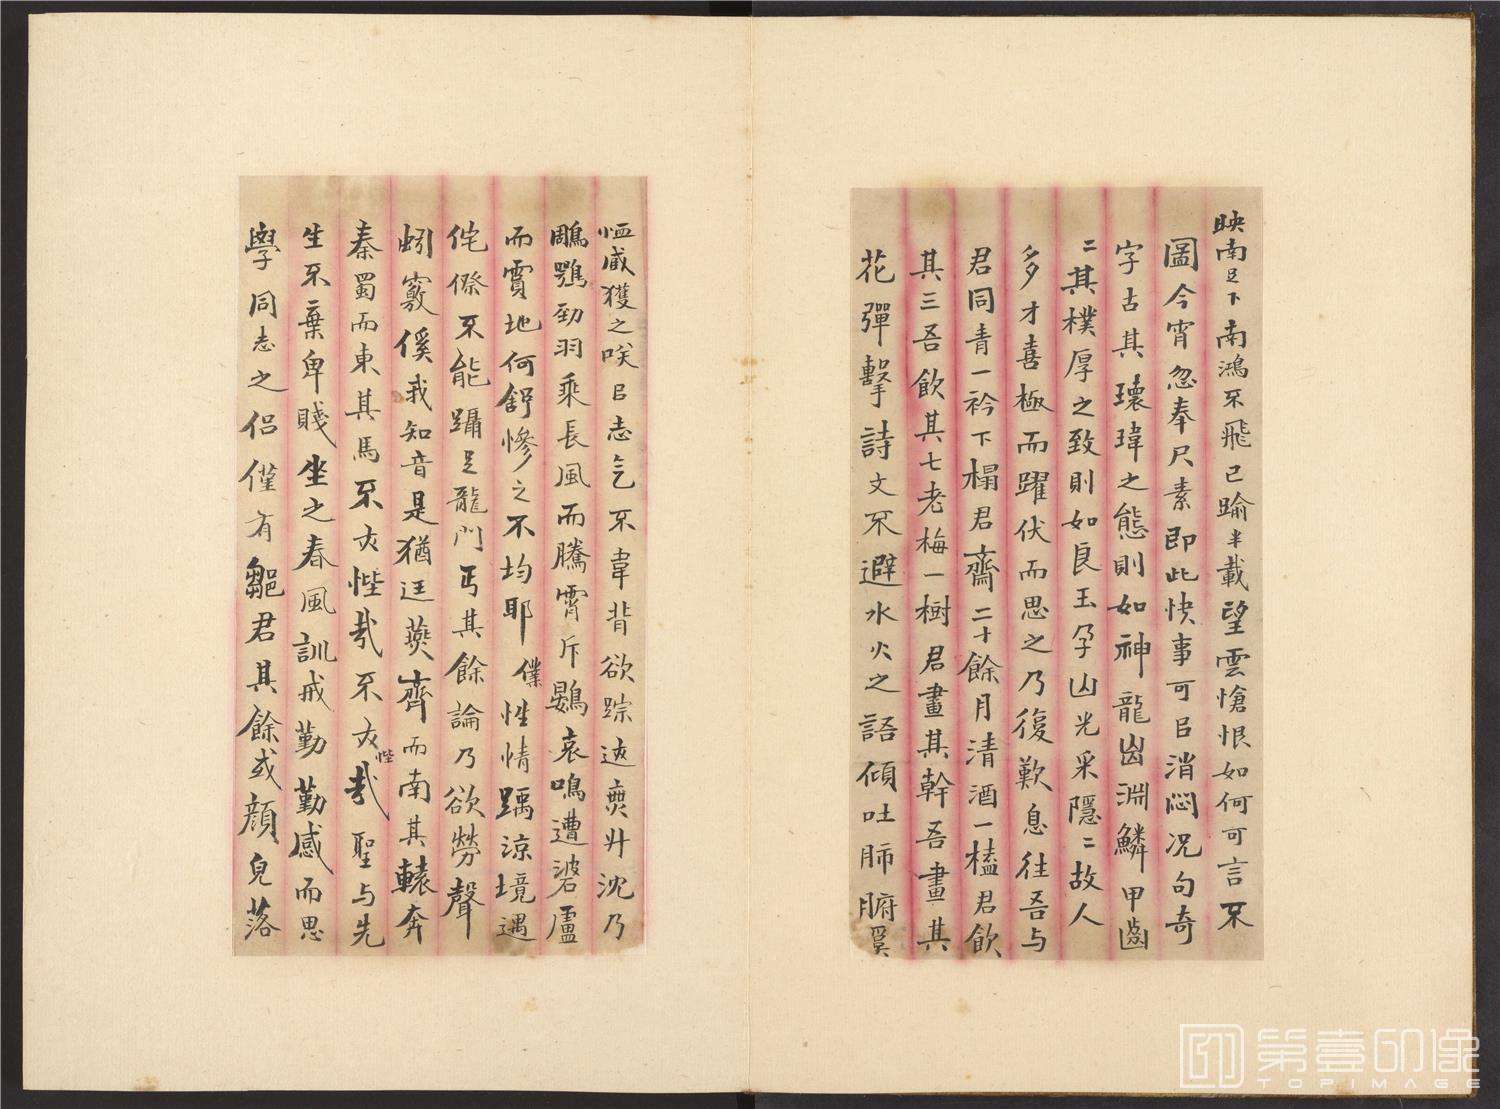 映南足下南鴻不飛已踰半載望雲愴恨如何可言不
圖今宵忽奉尺素即此快事可㠯消悶況句奇
字古其瓌瑋之態則如神龍出淵鱗甲齒
二其樸厚之致則如良玉孕山光采隱二故人
多才喜極而躍伏而思之乃復歎息往吾与
君同青一衿下榻君齋二十餘月清酒一榼君飲
其三吾飲其七老梅一樹君畫其幹吾畫其
花彈擊詩文不避水火之語傾吐肺腑
臧獲之咲㠯志乞不韋背欲踪迹升沈乃
鵰鶚勁羽乘長風而騰霄斥鷃哀鳴遭蒦廬
而賈地何舒慘之不均耶僕性情踽涼境遇
侘傺不能躡足龍門丐其餘論乃欲勞聲
蚓竅傒我知音是猶迋燕齊而南其轅奔
秦蜀而東其馬不亦悂哉不亦悂哉聖与先
生不棄卑賤坐之春風訓戒勤勤感而思
學同志之侶僅有鄒君其餘或顏皃落
第壹印像
TOPIMAGE